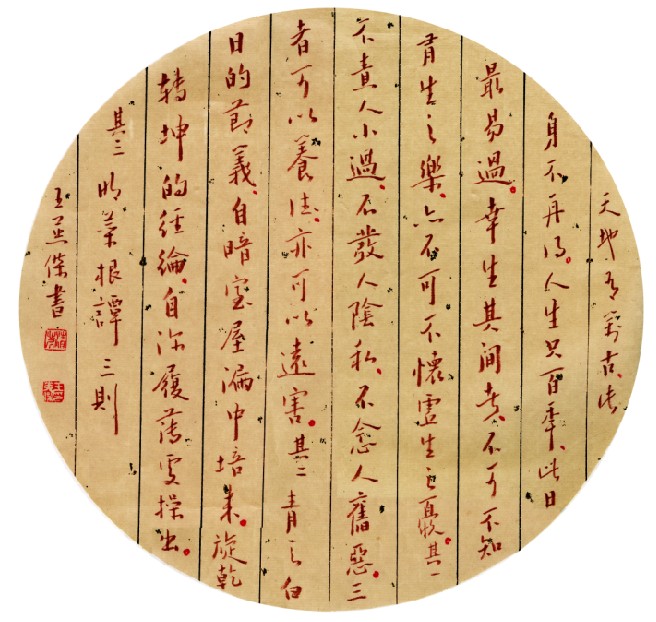 天地有萬古此
身不再得人生只百年此日
最易過幸生其間者不可不知
有生之樂亦不可不懷虛生之憂其一
不責人小過不發人陰私不念人舊惡三
者可以養德亦可以遠害其二青天白
日的節義自暗室屋漏中培來旋乾
轉坤的經綸自深履薄處操出
其三明菜根譚三則
王書